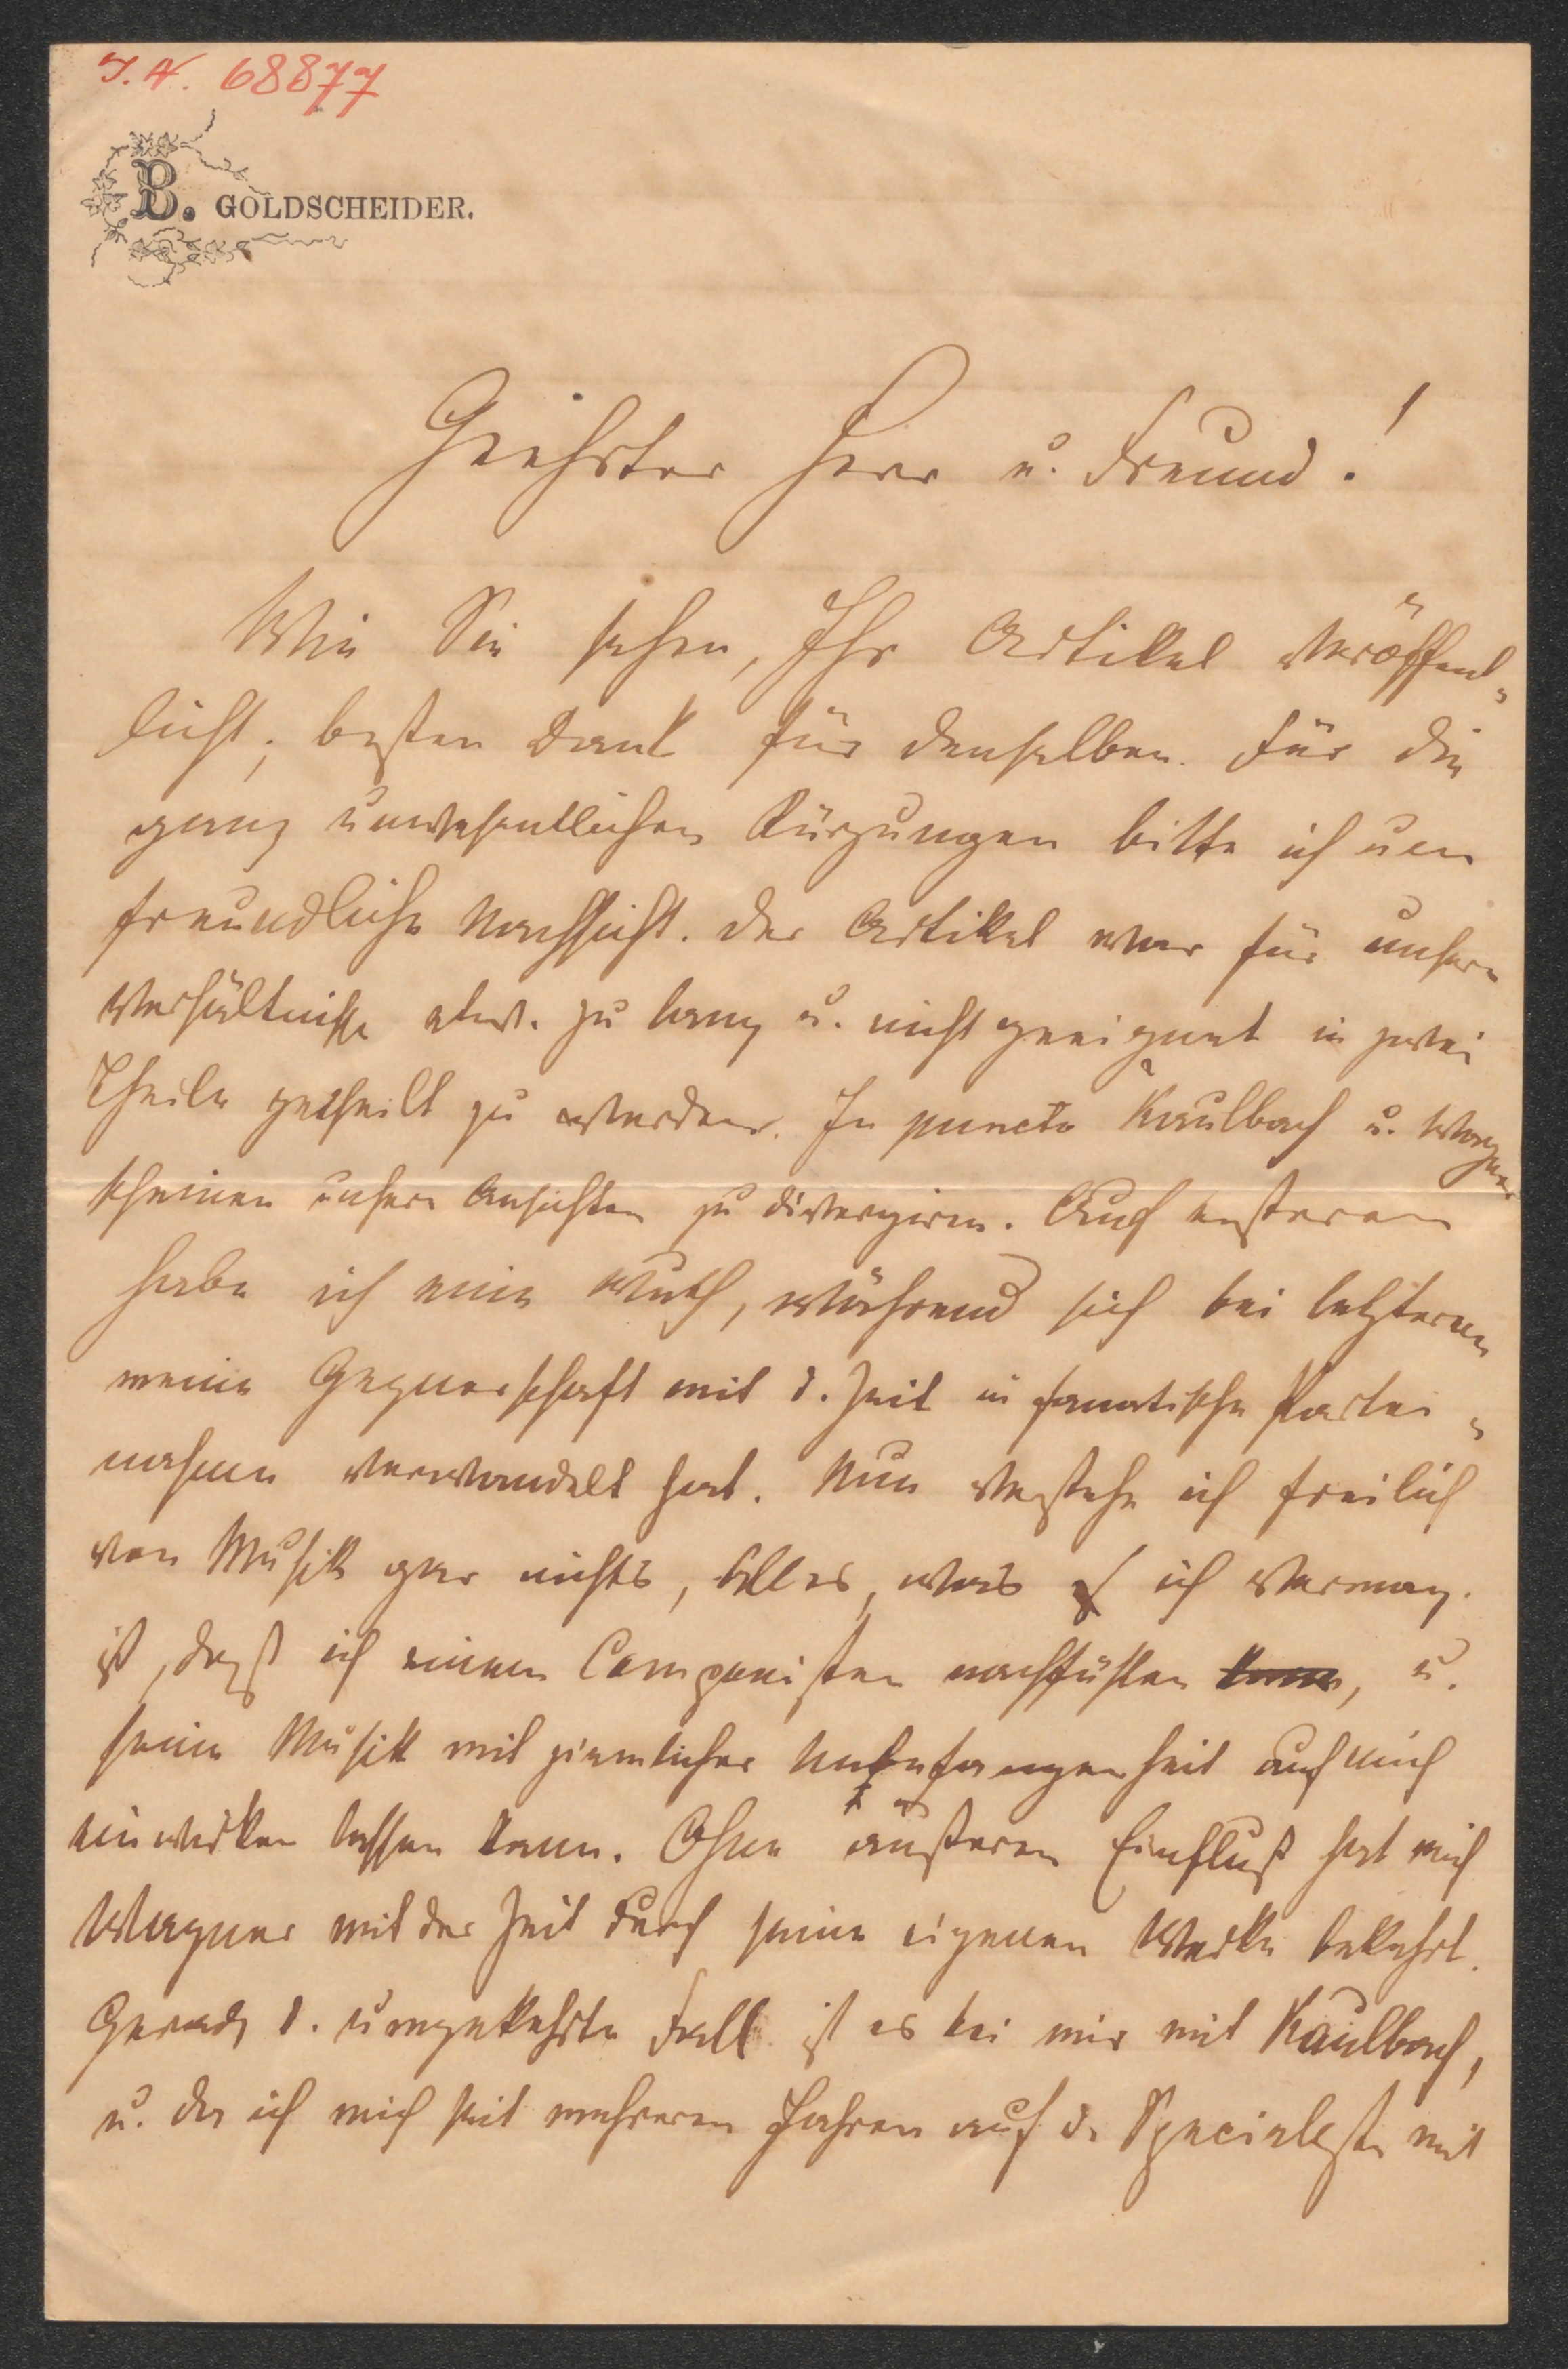 I. N. 68877
B. GOLDSCHEIDER.
Geehrter Herr u. Freund!
Wie Sie sehen, Ihr Artikel veröffent-
licht; besten Dank für denselben. Für die
ganz unwesentlichen Kürzungen bitte ich um
freundliche Nachsicht. Der Artikel war für unsere
Verhältnisse etw. zu lang u. nicht geeignet in zwei
Theile getheilt zu werden. In puncto Kaulbach u. Wagner
scheinen unsere Ansichten zu divergiren. Auf ersteren
habe ich eine Wuth, während sich bei letzterem
meine Gegnerschaft mit d. Zeit in fanatische Partei-
nahme verwandelt hat. Nun verstehe ich freilich
von Musik gar nichts, Alles, was ich vermag.
ist, daß ich einem Componisten nachfühlen kann, u.
seine Musik mit ziemlicher Unbefangenheit auf mich
einwirken lassen kann. Ohne äußeren Einfluß hat mich
Wagner mit der Zeit durch seine eigenen Werke bekehrt.
Gerade d. umgekehrte Fall ist es bei mir mit Kaulbach,
u. da ich mich seit mehreren Jahren auf d. Speciellste mit